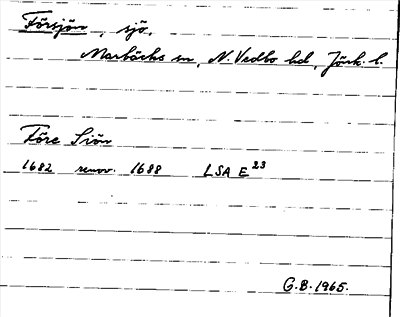 Försjön, sjö,
Marbäcks sn, N. Vedbo hd, Jönk. l.
Före Siön
1682 renov. 1688 LSA E 23
G.B. 1965.